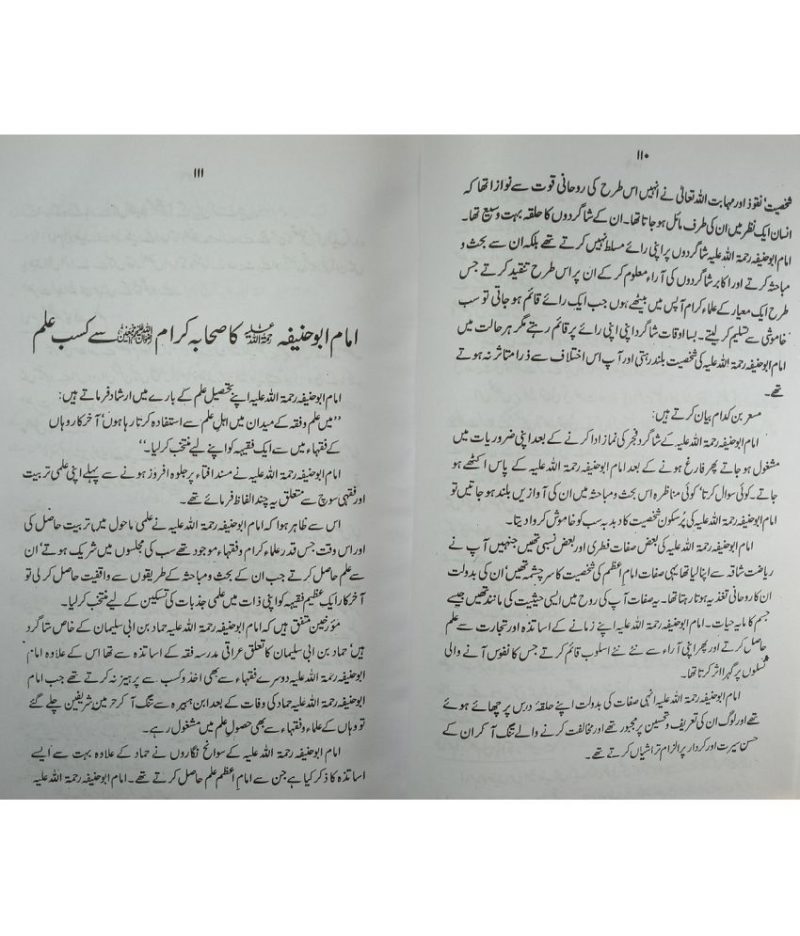 ۱۱۰
شخصیت' نفوذ اور مہابت اللہ تعالیٰ نے انہیں اس طرح کی روحانی قوت سے نوازا تھا کہ
انسان ایک نظر میں ان کی طرف مائل ہو جاتا تھا۔ ان کے شاگردوں کا حلقہ بہت وسیع تھا۔
امام ابوحنیفہ رحمۃ اللہ علیہ شاگردوں پر اپنی رائے مسلط نہیں کرتے تھے بلکہ ان سے بحث و
مباحثہ کرتے اور اکابر شاگردوں کی آراء معلوم کر کے ان پر اس طرح تنقید کرتے جس
طرح ایک معیار کے علماء کرام آپس میں بیٹھے ہوں جب ایک رائے قائم ہو جاتی تو سب
خاموشی سے تسلیم کر لیتے۔ بسا اوقات شاگرد اپنی اپنی رائے پر قائم رہتے مگر ہر حالت میں
امام ابوحنیفہ رحمۃ اللہ علیہ کی شخصیت بلند رہتی اور آپ اس اختلاف سے ذرا متاثر نہ ہوتے
تھے۔
مسعر بن کدام بیان کرتے ہیں:
امام ابوحنیفہ رحمۃ اللہ علیہ کے شاگرد فجر کی نماز ادا کرنے کے بعد اپنی ضروریات میں
مشغول ہو جاتے پھر فارغ ہونے کے بعد امام ابوحنیفہ رحمۃ اللہ علیہ کے پاس اکٹھے ہو
جاتے۔ کوئی سوال کرتا' کوئی مناظرہ اس بحث و مباحثہ میں ان کی آوازیں بلند ہو جاتیں تو
امام ابوحنیفہ رحمۃ اللہ علیہ کی پُرسکون شخصیت کا دبدبہ سب کو خاموش کروا دیتا۔
امام ابوحنیفہ رحمۃ اللہ علیہ کی بعض صفات فطری اور بعض نسبی تھیں جنہیں آپ نے
ریاضت شاقہ سے اپنا لیا تھا یہی صفات امام اعظم کی شخصیت کا سرچشمہ تھیں' ان کی بدولت
ان کا روحانی تغذیہ ہوتا رہتا تھا۔ یہ صفات آپ کی روح میں ایسی حیثیت کی مانند تھیں جیسے
جسم کا مایہ حیات۔ امام ابوحنیفہ رحمۃ اللہ علیہ اپنے زمانے کے اساتذہ اور تجارت سے علم
حاصل کرتے اور پھر اپنی آراء سے نئے نئے اسلوب قائم کرتے جس کا نفوس آنے والی
نسلوں پر گہرا اثر کرتا تھا۔
امام ابوحنیفہ رحمۃ اللہ علیہ انہی صفات کی بدولت اپنے حلقۂ درس پر چھائے ہوئے
تھے اور لوگ ان کی تعریف و تحسین پر مجبور تھے اور مخالفت کرنے والے تنگ آ کر ان کے
حسن سیرت اور کردار پر الزام تراشیاں کرتے تھے۔
۱۱۱
امام ابوحنیفہ رحمۃ اللہ علیہ کا صحابہ کرام سے کسب علم
امام ابوحنیفہ رحمۃ اللہ علیہ اپنے تحصیل علم کے بارے میں ارشاد فرماتے ہیں:
''میں علم و فقہ کے میدان میں اہل علم سے استفادہ کرتا رہا ہوں' آخرکار وہاں
کے فقہاء میں سے ایک فقیہہ کو اپنے لیے منتخب کر لیا۔''
امام ابوحنیفہ رحمۃ اللہ علیہ نے مسند افتاء پر جلوہ افروز ہونے سے پہلے اپنی علمی تربیت
اور فقہی سوچ سے متعلق یہ چند الفاظ فرمائے تھے۔
اس سے ظاہر ہوا کہ امام ابوحنیفہ رحمۃ اللہ علیہ نے علمی ماحول میں تربیت حاصل کی
اور اس وقت جس قدر علماء کرام و فقہاء موجود تھے سب کی مجلسوں میں شریک ہوتے' ان
سے علم حاصل کرتے جب ان کے بحث و مباحثے کے طریقوں سے واقفیت حاصل کر لی تو
آخرکار ایک عظیم فقیہہ کو اپنی ذات میں علمی جذبات کی تسکین کے لیے منتخب کر لیا۔
مؤرخین متفق ہیں کہ امام ابوحنیفہ رحمۃ اللہ علیہ حماد بن ابی سلیمان کے خاص شاگرد
ہیں' حماد بن ابی سلیمان کا تعلق عراقی مدرسہ فقہ کے اساتذہ سے تھا اس کے علاوہ امام
ابوحنیفہ رحمۃ اللہ علیہ دوسرے فقہاء سے بھی اخذ و کسب سے پرہیز نہ کرتے تھے جب امام
ابوحنیفہ رحمۃ اللہ علیہ حماد کی وفات کے بعد ابن ہبیرہ سے تنگ آ کر حرمین شریفین چلے گئے
تو وہاں کے علماء و فقہاء سے بھی حصول علم میں مشغول رہے۔
امام ابوحنیفہ رحمۃ اللہ علیہ کے سوانح نگاروں نے حماد کے علاوہ بہت سے ایسے
اساتذہ کا ذکر کیا ہے جن سے امام اعظم علم حاصل کرتے تھے۔ امام ابوحنیفہ رحمۃ اللہ علیہ